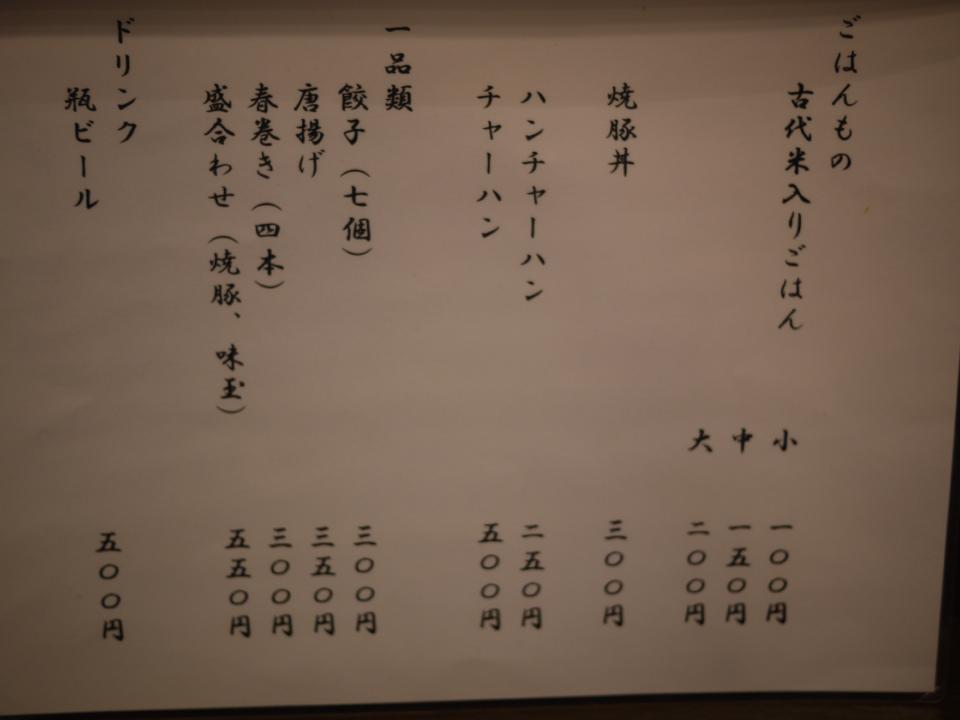 ごはんもの
古代米入りごはん
小 一〇〇円
中 一五〇円
大 二〇〇円
焼豚丼 三〇〇円
ハンチャーハン 二五〇円
チャーハン 五〇〇円
一品類
餃子（七個） 三〇〇円
唐揚げ 三五〇円
春巻き（四本） 三〇〇円
盛合わせ（焼豚、味玉） 五五〇円
ドリンク
瓶ビール 五〇〇円